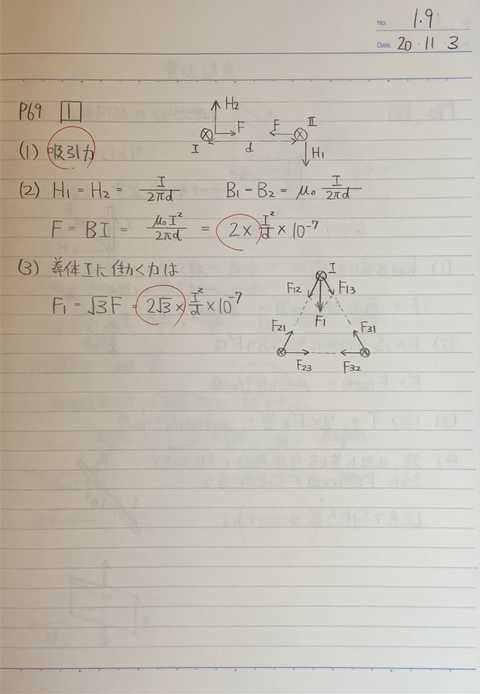 No. 1.9
Date 20・11 3
P69 1
H2
F F II
I d
H1
(1) 吸引力
(2) H1 = H2 = I/2πd B1 - B2 = μ0 I/2πd
F = BI = μ0I²/2πd = 2× I²/d ×10⁻⁷
(3) 導体Iに働く力は
F1 = √3F = 2√3× I²/d ×10⁻⁷
I
F12 F13
F1
F21 F31
F23 F32